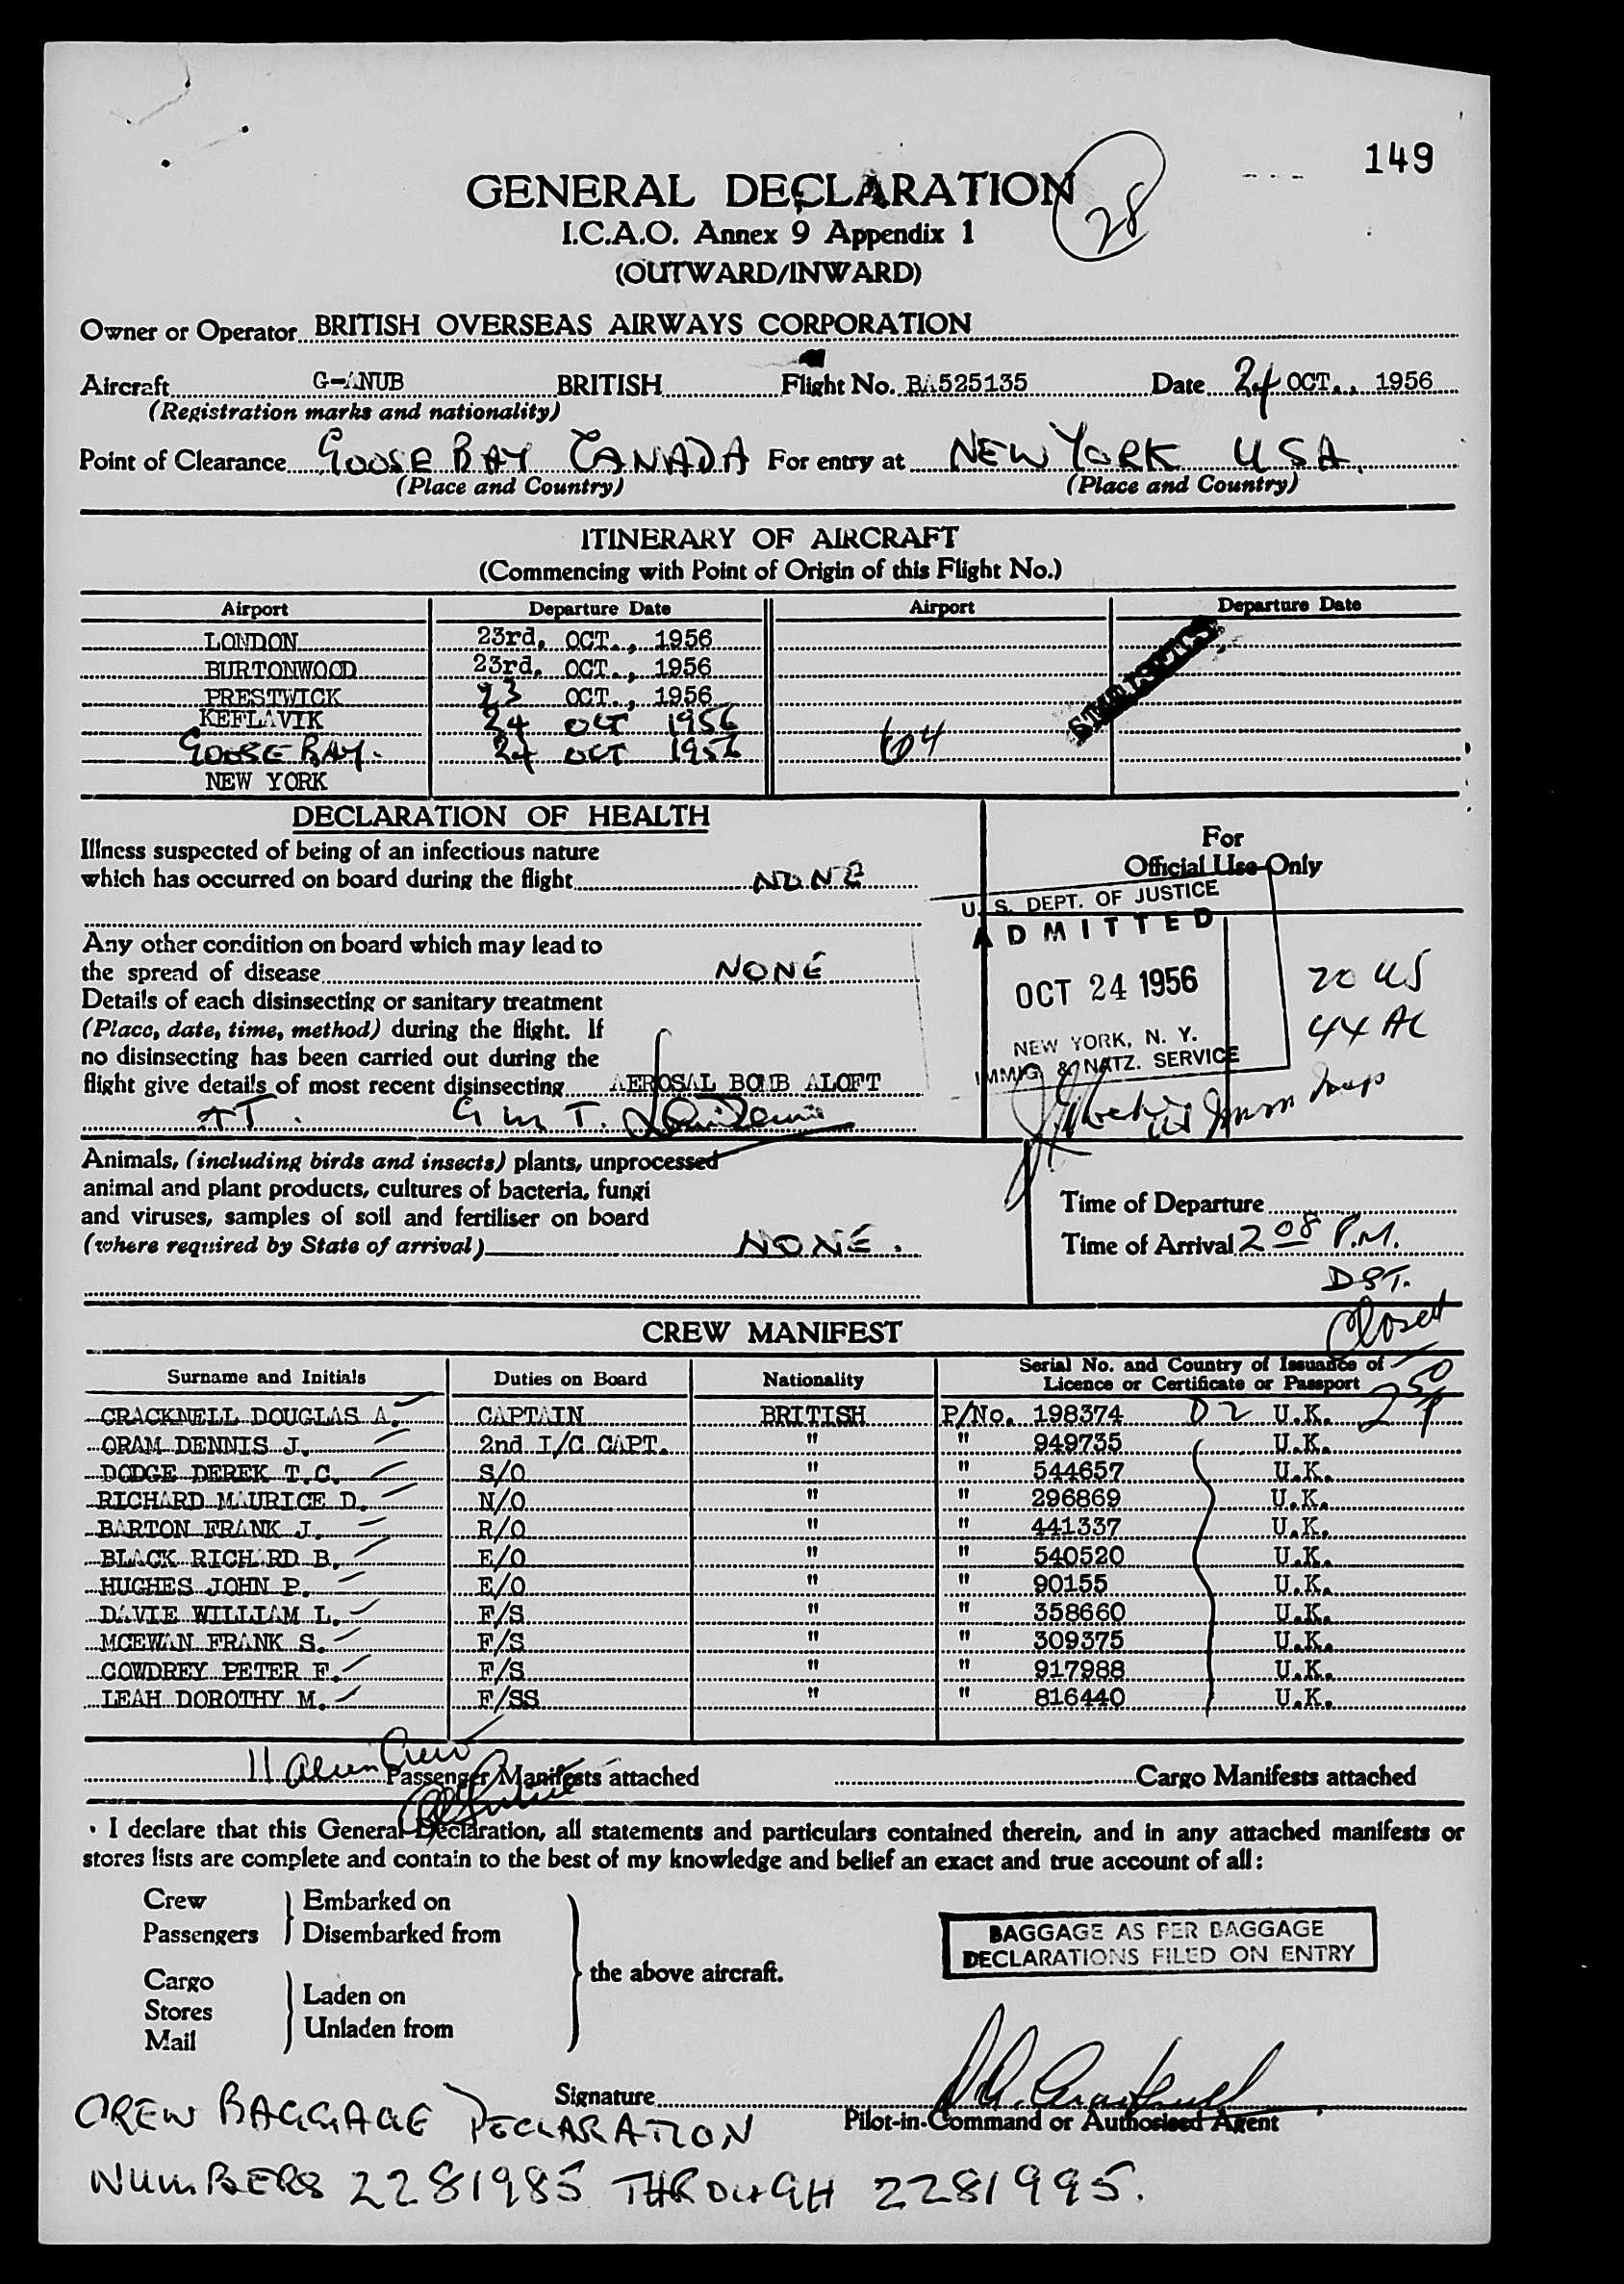 149
GENERAL DECLARATION
28
I.C.A.O. Annex 9 Appendix 1
(OUTWARD/INWARD)
Owner or Operator BRITISH OVERSEAS AIRWAYS CORPORATION
Aircraft G-ANUB BRITISH Flight No. BA525135 Date 24 OCT., 1956
(Registration marks and nationality)
Point of Clearance GOOSE BAY CANADA For entry at NEW YORK USA.
(Place and Country) (Place and Country)
ITINERARY OF AIRCRAFT
(Commencing with Point of Origin of this Flight No.)
Airport Departure Date Airport Departure Date
LONDON 23rd, OCT., 1956
BURTONWOOD 23rd. OCT., 1956
PRESTWICK 23 OCT., 1956
KEFLAVIK 24 OCT 1956
GOOSE BAY. 24 OCT 1956 604
NEW YORK
STATISTICS
DECLARATION OF HEALTH
Illness suspected of being of an infectious nature
which has occurred on board during the flight NONE
Any other condition on board which may lead to
the spread of disease NONE
Details of each disinsecting or sanitary treatment
(Place, date, time, method) during the flight. If
no disinsecting has been carried out during the
flight give details of most recent disinsecting AEROSAL BOMB ALOFT
AT. GMT.
For
Official Use Only
U. S. DEPT. OF JUSTICE
ADMITTED
OCT 24 1956
NEW YORK, N. Y.
IMMIG. & NATZ. SERVICE
20 US
44 AL
Imm Insp
Animals, (including birds and insects) plants, unprocessed
animal and plant products, cultures of bacteria, fungi
and viruses, samples of soil and fertiliser on board
(where required by State of arrival) NONE.
Time of Departure
Time of Arrival 2 08 P.M.
DST.
Closed
250
CREW MANIFEST
Surname and Initials Duties on Board Nationality Serial No. and Country of Issuance of
Licence or Certificate or Passport
CRACKNELL DOUGLAS A. CAPTAIN BRITISH P/No. 198374 D2 U.K.
ORAM DENNIS J. 2nd I/C CAPT. " " 949735 U.K.
DODGE DEREK T.C. S/O " " 544657 U.K.
RICHARD MAURICE D. N/O " " 296869 U.K.
BARTON FRANK J. R/O " " 441337 U.K.
BLACK RICHARD B. E/O " " 540520 U.K.
HUGHES JOHN P. E/O " " 90155 U.K.
DAVIE WILLIAM L. F/S " " 358660 U.K.
MCEWAN FRANK S. F/S " " 309375 U.K.
COWDREY PETER F. F/S " " 917988 U.K.
LEAH DOROTHY M. F/SS " " 816440 U.K.
11 Alien Crew
Passenger Manifests attached Cargo Manifests attached
I declare that this General Declaration, all statements and particulars contained therein, and in any attached manifests or
stores lists are complete and contain to the best of my knowledge and belief an exact and true account of all:
Crew Embarked on
Passengers Disembarked from
the above aircraft.
Cargo
Stores Laden on
Mail Unladen from
BAGGAGE AS PER BAGGAGE
DECLARATIONS FILED ON ENTRY
Signature
Pilot-in-Command or Authorised Agent
CREW BAGGAGE DECLARATION
NUMBERS 2281985 THROUGH 2281995.